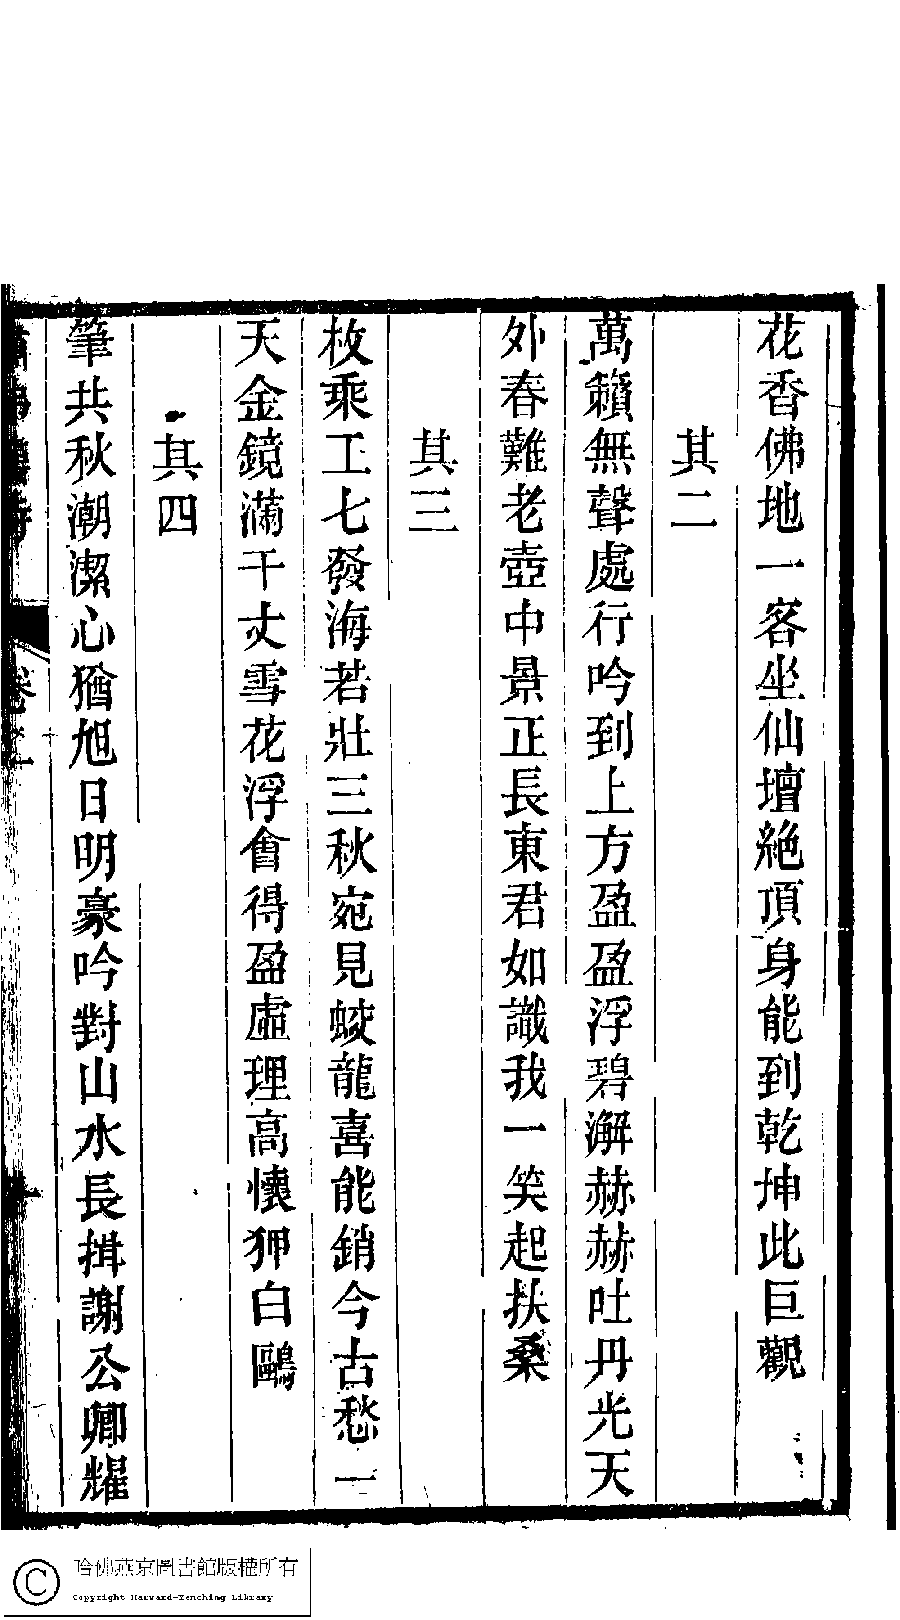 花香佛地一客坐仙壇絶頂身能到乾坤此巨觀
其二
萬籟無聲處行吟到上方盈盈浮碧澥赫赫吐丹光天
外春難老壺中景正長東君如識我一笑起扶桑
其三
枚乘工七發海若壯三秋宛見蛟龍喜能銷今古愁一
天金鏡滿千丈雪花浮會得盈虛理高懷狎白鷗
其四
筆共秋潮潔心猶旭日明豪吟對山水長揖謝公卿燿
卷之一
哈佛燕京圖書館版權所有
Copyright Harvard-Yenching Library